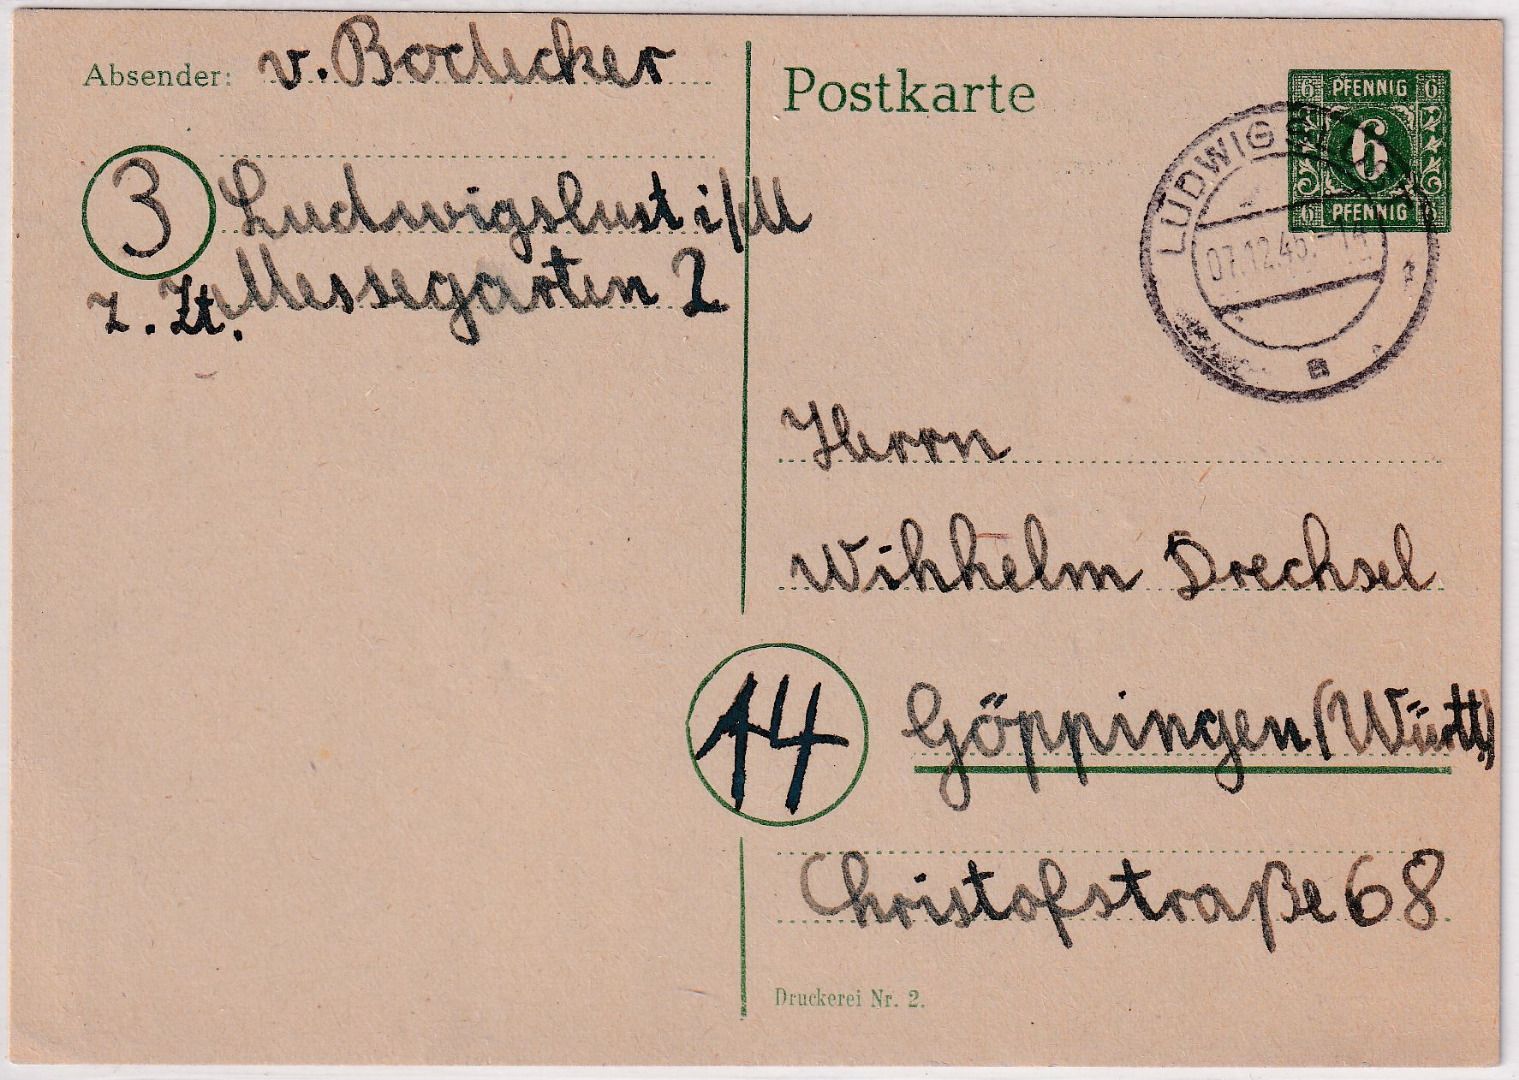 Absender: v. Bodecker
3 Ludwigslust i/M
z. Zt. Messegarten 2
Postkarte
6 PFENNIG 6
6
6 PFENNIG 6
LUDWIGSL
07.12.45.-14
a
Herrn
Wilhelm Drechsel
14 Göppingen (Württ.)
Christofstraße 68
Druckerei Nr. 2.